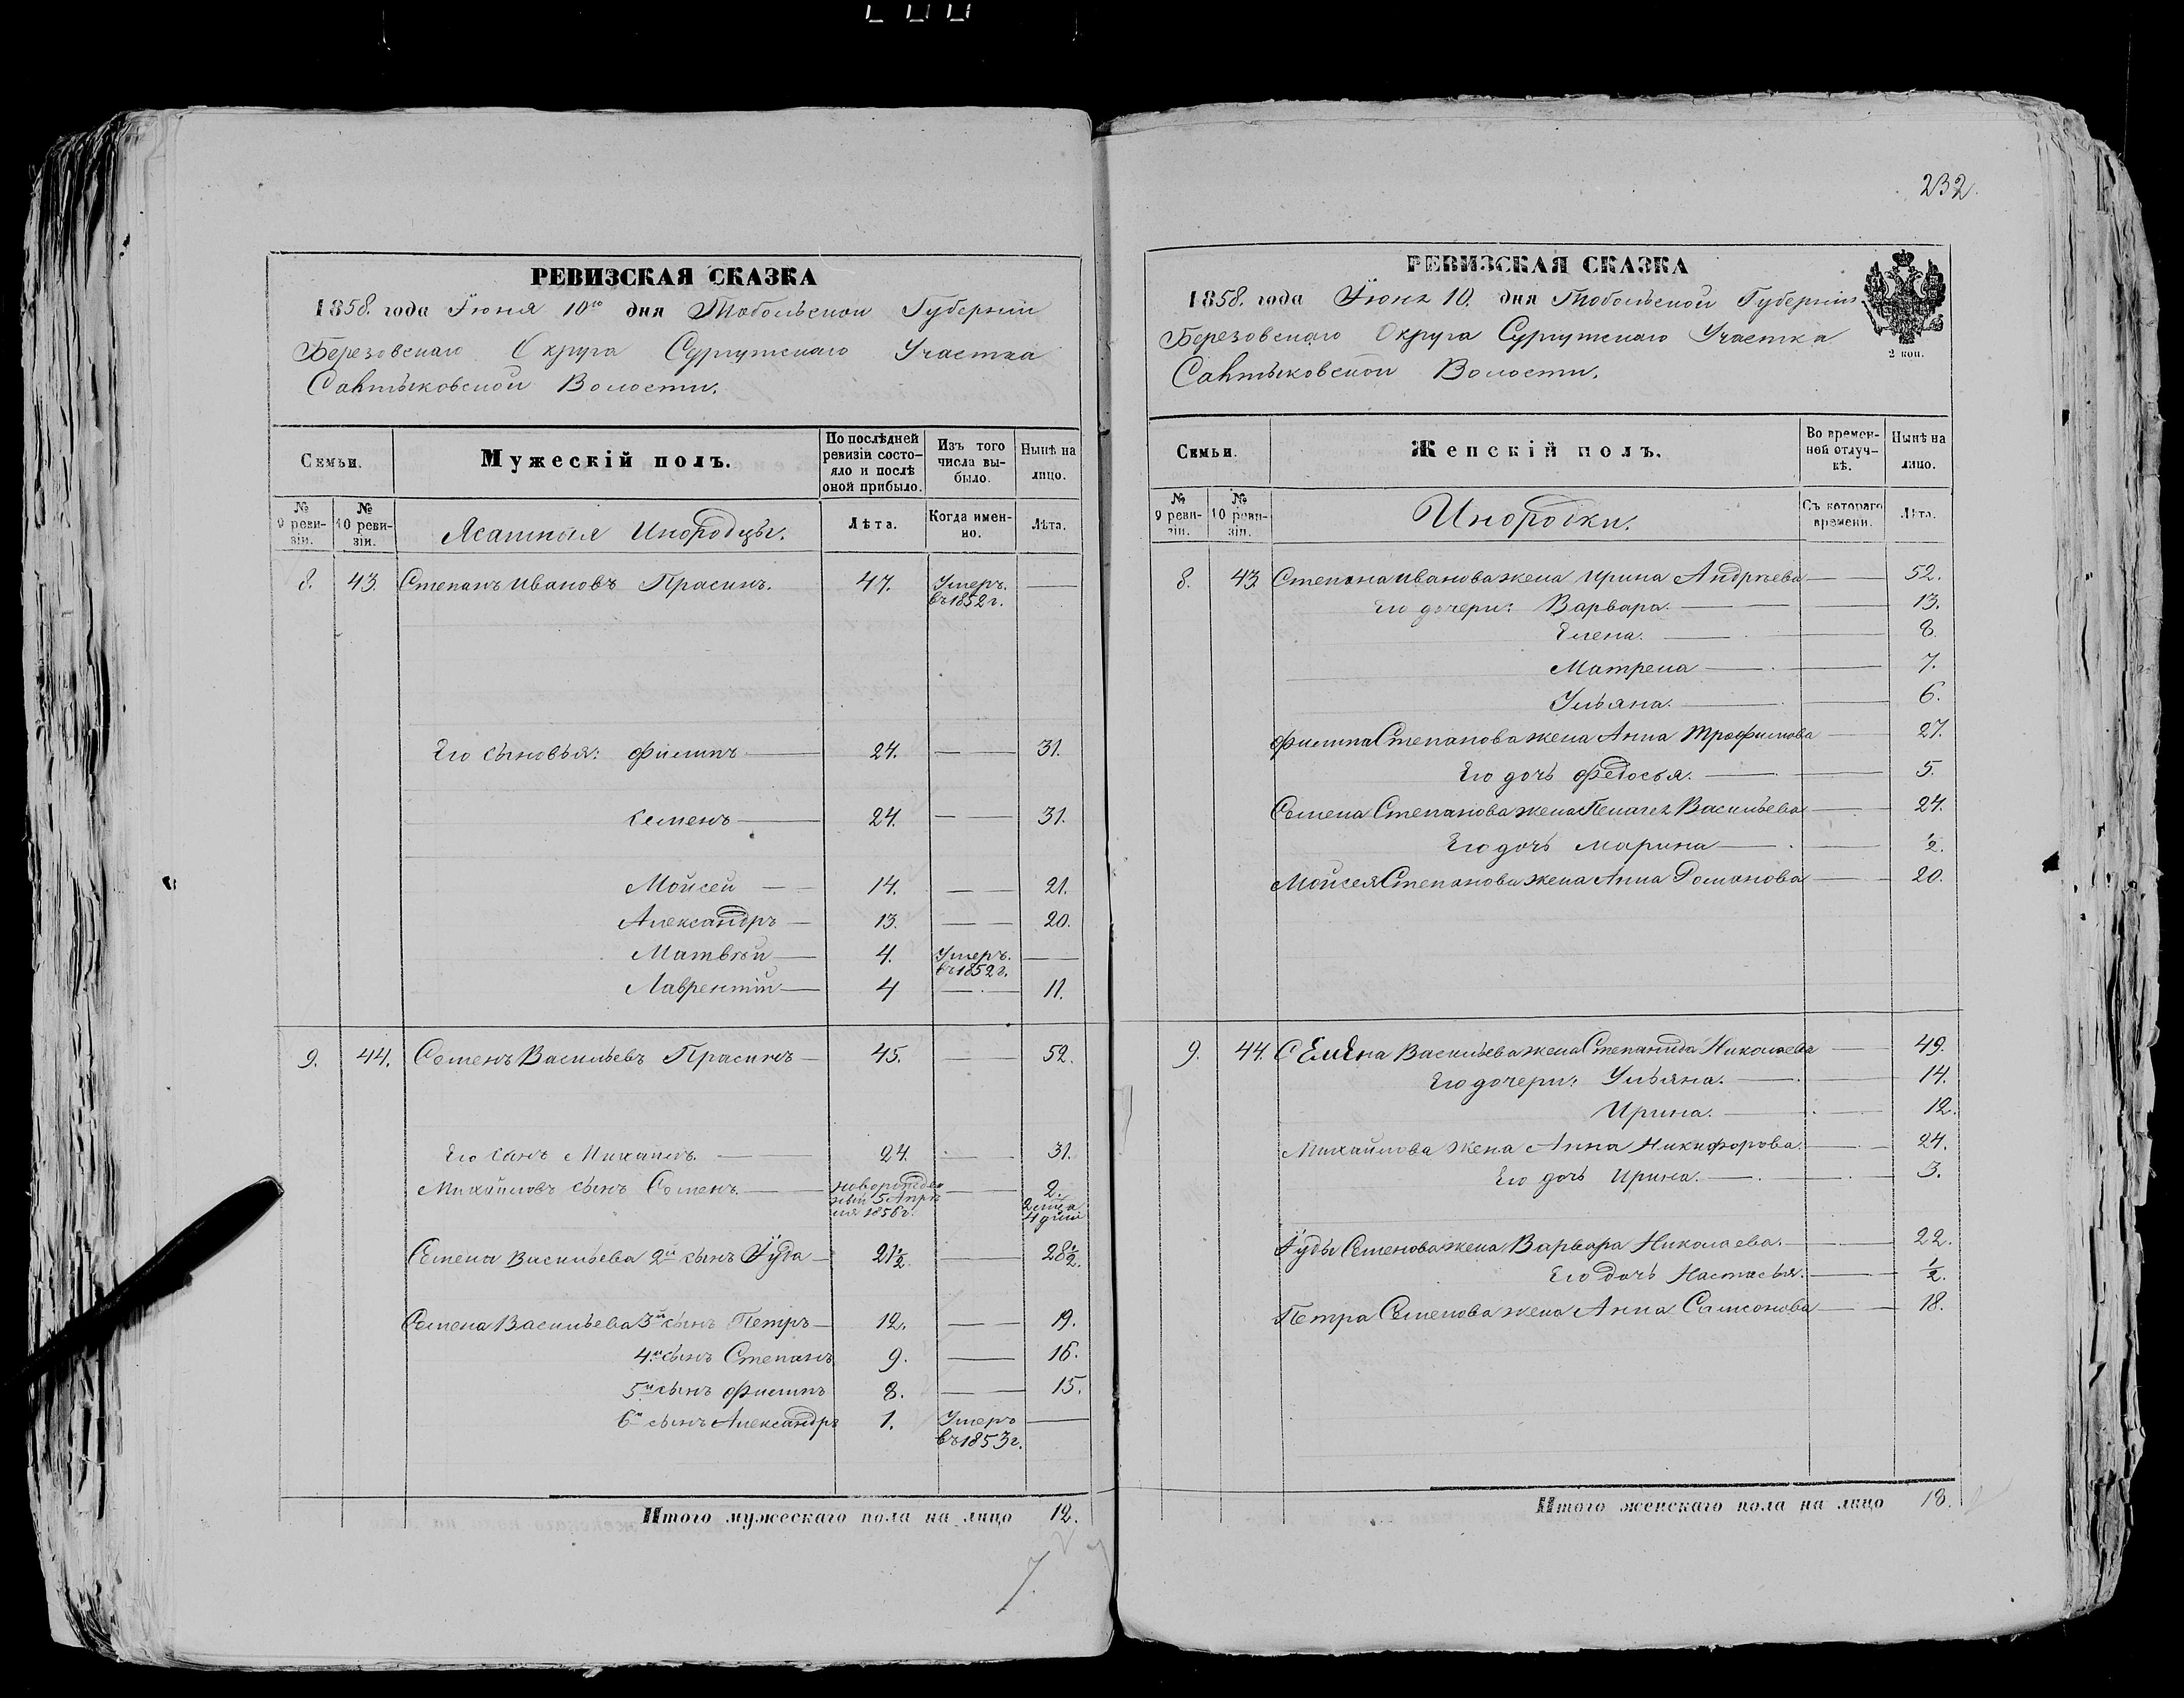 232.
РЕВИЗСКАЯ СКАЗКА
1858. года Іюня 10го дня Тобольской Губерніи
Березовскаго Округа Сургутскаго Участка
Салтыковской Волости.
Семьи.
Мужескій полъ.
По послѣдней ревизіи состояло и послѣ оной прибыло.
Изъ того числа выбыло.
Нынѣ на лицо.
№ 9 ревизіи.
№ 10 ревизіи.
Ясашныя Инородцы.
Лѣта.
Когда именно.
Лѣта.
8. 43. Степанъ Ивановъ Прасинъ. 47. Умеръ. —
въ 1852 г.
Его сыновья: Филипъ — 24. — 31.
Семенъ — 24. — 31.
Мойсей — 14. — 21.
Александръ — 13. — 20.
Матвѣй — 4. Умеръ. —
въ 1852 г.
Лаврентій — 4 — 11.
9. 44. Семенъ Васильевъ Прасинъ — 45. — 52.
Его сынъ Михайлъ. — 24. — 31.
Михайловъ сынъ Семенъ. — новорожде — 2.
ный 5 Апре 2 мца
ля 1856 г. 4 дни
Семена Васильева 2й сынъ Іуда — 21½. — 28½.
Семена Васильева 3й сынъ Петръ — 12. — 19.
4й сынъ Степанъ 9. — 16.
5й сынъ Филипъ 8. — 15.
6й сынъ Александръ 1. Умеръ —
въ 1853 г.
Итого мужескаго пола на лицо 12.
РЕВИЗСКАЯ СКАЗКА
1858. года Іюня 10. дня Тобольской Губерніи
Березовскаго Округа Сургутскаго Участка
Салтыковской Волости.
2 коп.
Семьи.
Женскій полъ.
Во временной отлучкѣ.
Нынѣ на лицо.
№ 9 ревизіи.
№ 10 ревизіи.
Инородки.
Съ котораго времени.
Лѣта.
8. 43. Степана Иванова жена Ирина Андрѣева — 52.
Его дочери: Варвара. — 13.
Елена. — 8.
Матрена — 7.
Ульяна. — 6.
Филипа Степанова жена Анна Трофимова — 27.
Его дочь Федосья. — 5.
Семена Степанова жена Пелагея Васильева — 24.
Его дочь Марина — ½.
Мойсея Степанова жена Анна Романова — 20.
9. 44. Семена Васильева жена Степанида Николаева — 49.
Его дочери: Ульяна. — 14.
Ирина. — 12.
Михайлова жена Анна Никифорова. — 24.
Его дочь Ирина. — 3.
Іуды Семенова жена Варвара Николаева. — 22.
Его дочь Настасья. — ½.
Петра Семенова жена Анна Самсонова — 18.
Итого женскаго пола на лицо 18.